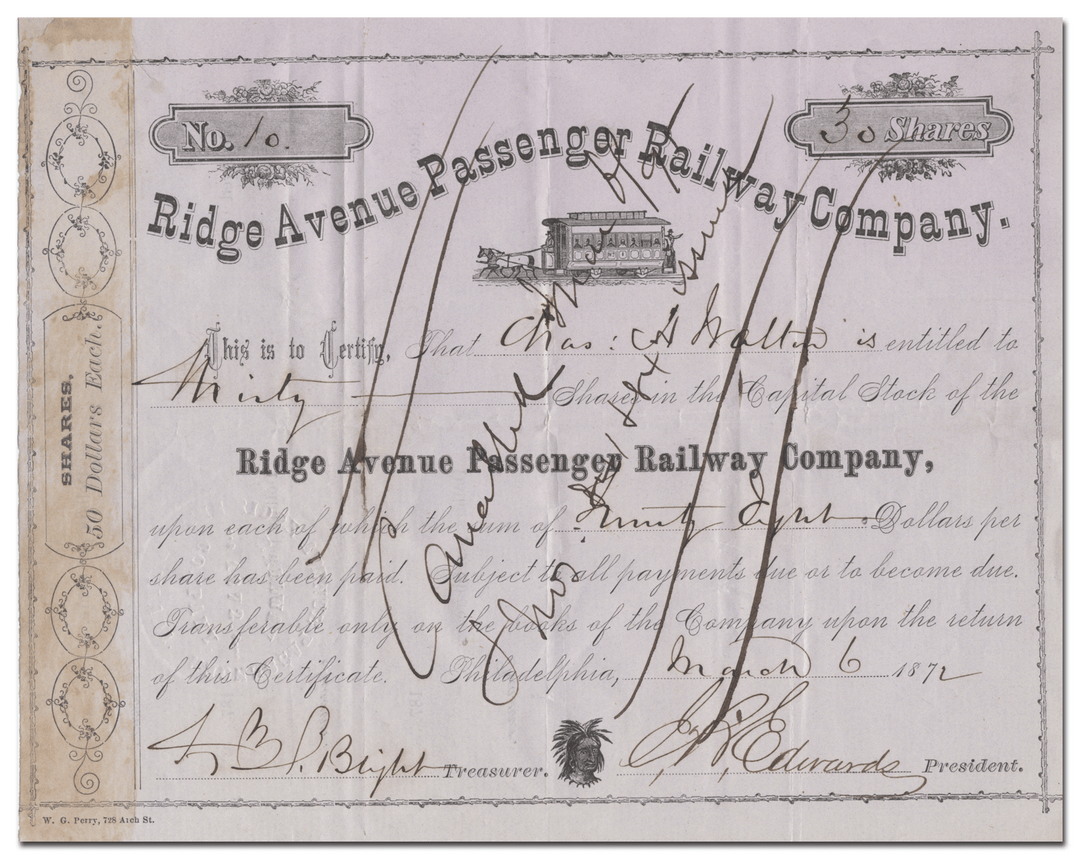 No. 10.
30 Shares
Ridge Avenue Passenger Railway Company.
This is to Certify, That Chas: A Walton is entitled to
Thirty Shares in the Capital Stock of the
Ridge Avenue Passenger Railway Company,
upon each of which the sum of Twenty Eight Dollars per
share has been paid. Subject to all payments due or to become due.
Transferable only on the books of the Company upon the return
of this Certificate. Philadelphia, March 6 1872
Bright Treasurer. Edwards President.
SHARES.
50 Dollars Each.
Cancelled
issued
W. G. Perry, 728 Arch St.